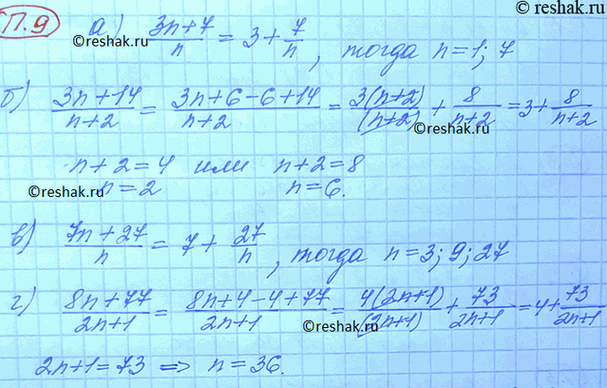 © reshak.ru
П.9 а) (3n+7)/n = 3 + 7/n, тогда n=1; 7
©reshak.ru
б) (3n+14)/(n+2) = (3n+6-6+14)/(n+2) = 3(n+2)/(n+2) + 8/(n+2) = 3 + 8/(n+2)
©reshak.ru
n+2=4 или n+2=8
n=2 n=6.
©reshak.ru
в) (7n+27)/n = 7 + 27/n, тогда n=3; 9; 27
г) (8n+77)/(2n+1) = (8n+4-4+77)/(2n+1) = 4(2n+1)/(2n+1) + 73/(2n+1) = 4 + 73/(2n+1)
©reshak.ru
2n+1=73 ⇒ n=36.